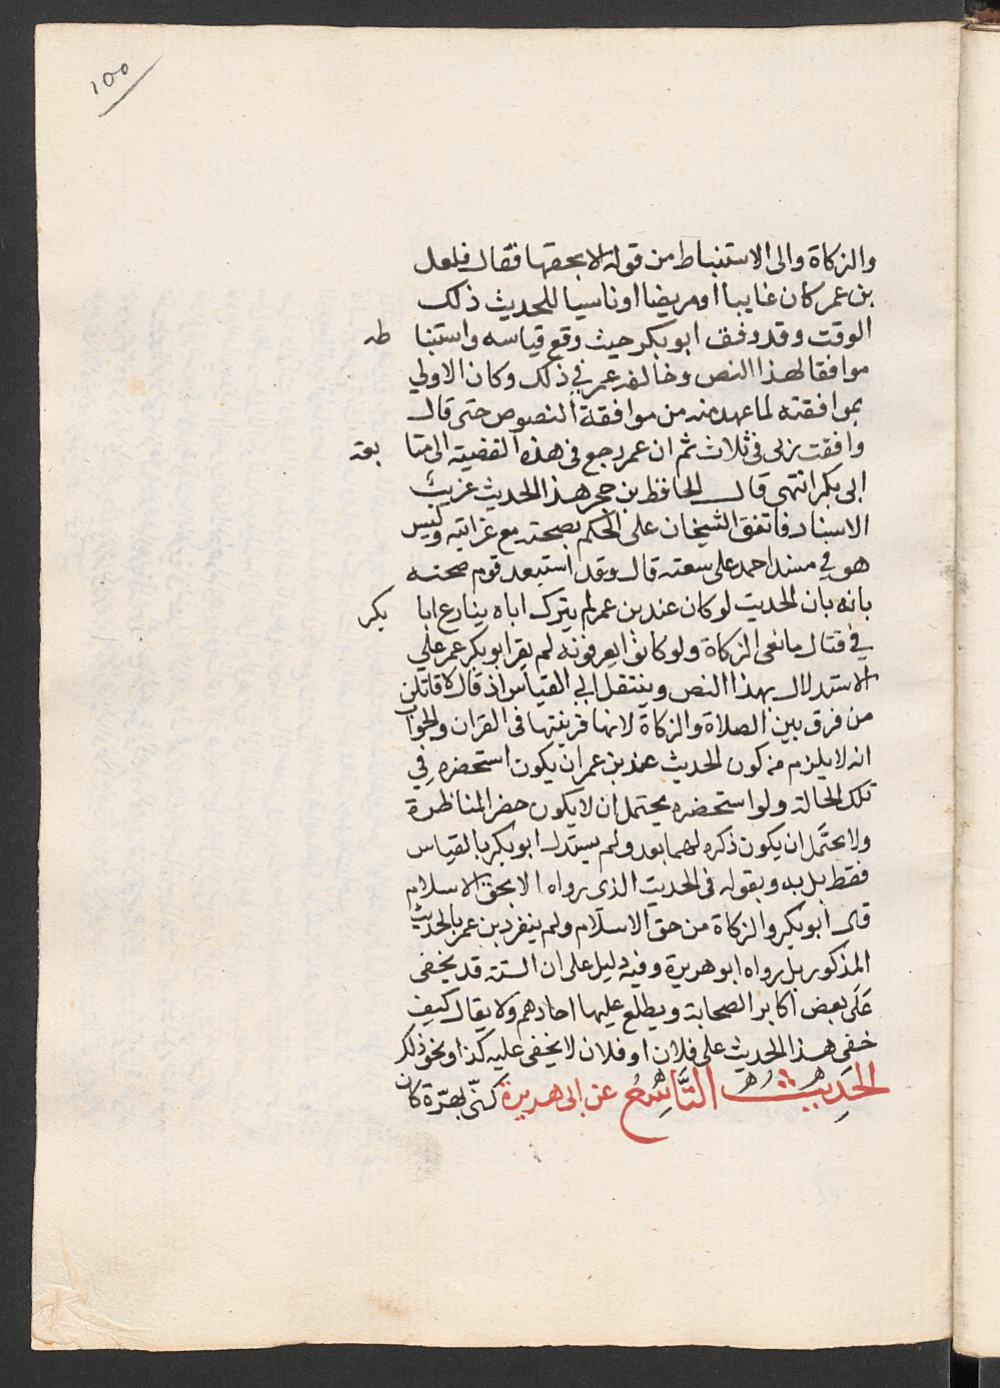 ١٥٥
والزكاة والى الاستنباط من قوله الا بحقها فقال فلعل
بن عمر كان غايبا او مريضا او ناسيا للحديث ذلك
الوقت وقد وفق ابو بكر حيث وقع قياسه واستنبا طه
موافقا لهذا النص وخالفه عمر في ذلك وكان الاولي
بموافقته لما عهد منه من موافقة النصوص حتى قال
وافقت ربى فى ثلاث ثم ان عمر رجع فى هذه القضية الى متا بعة
ابى بكر انتهى قال الحافظ بن حجر هذا الحديث غريب
الاسناد فاتفق الشيخان على الحكم بصحته مع غرابته وليس
هو في مسند احمد على سعته قال وقد استبعد قوم صحته
بانه بان الحديث لو كان عند بن عمر لم يترك اباه ينازع ابا بكر
في قتال مانعى الزكاة ولو كانوا يعرفونه لم يقر ابو بكر عمر علي
الاستدلال بهذا النص وينتقل الى القياس اذ قال لاقاتلن
من فرق بين الصلاة والزكاة لانها قرينتها فى القران والجواب
انه لا يلزم من كون الحديث عند بن عمر ان يكون استحضره في
تلك الحالة ولو استحضره يحتمل ان لا يكون حضر المناظرة
ولا يحتمل ان يكون ذكره لهما بعد ولم يستدل ابو بكر بالقياس
فقط بل به وبقوله فى الحديث الذى رواه الا بحق الاسلام
قال ابو بكر والزكاة من حق الاسلام ولم ينفرد بن عمر بالحديث
المذكور بل رواه ابو هريرة وفيه دليل على ان السنة قد يخفى
عَلَى بعض اكابر الصحابة ويطلع عليها احادهم ولا يقال كيف
خفي هذا الحديث على فلان او فلان لا يخفى عليه كذا ونحو ذلك
الحَدِيثُ التَّاسِعُ عن ابى هريرة كنّى بهرّة كان